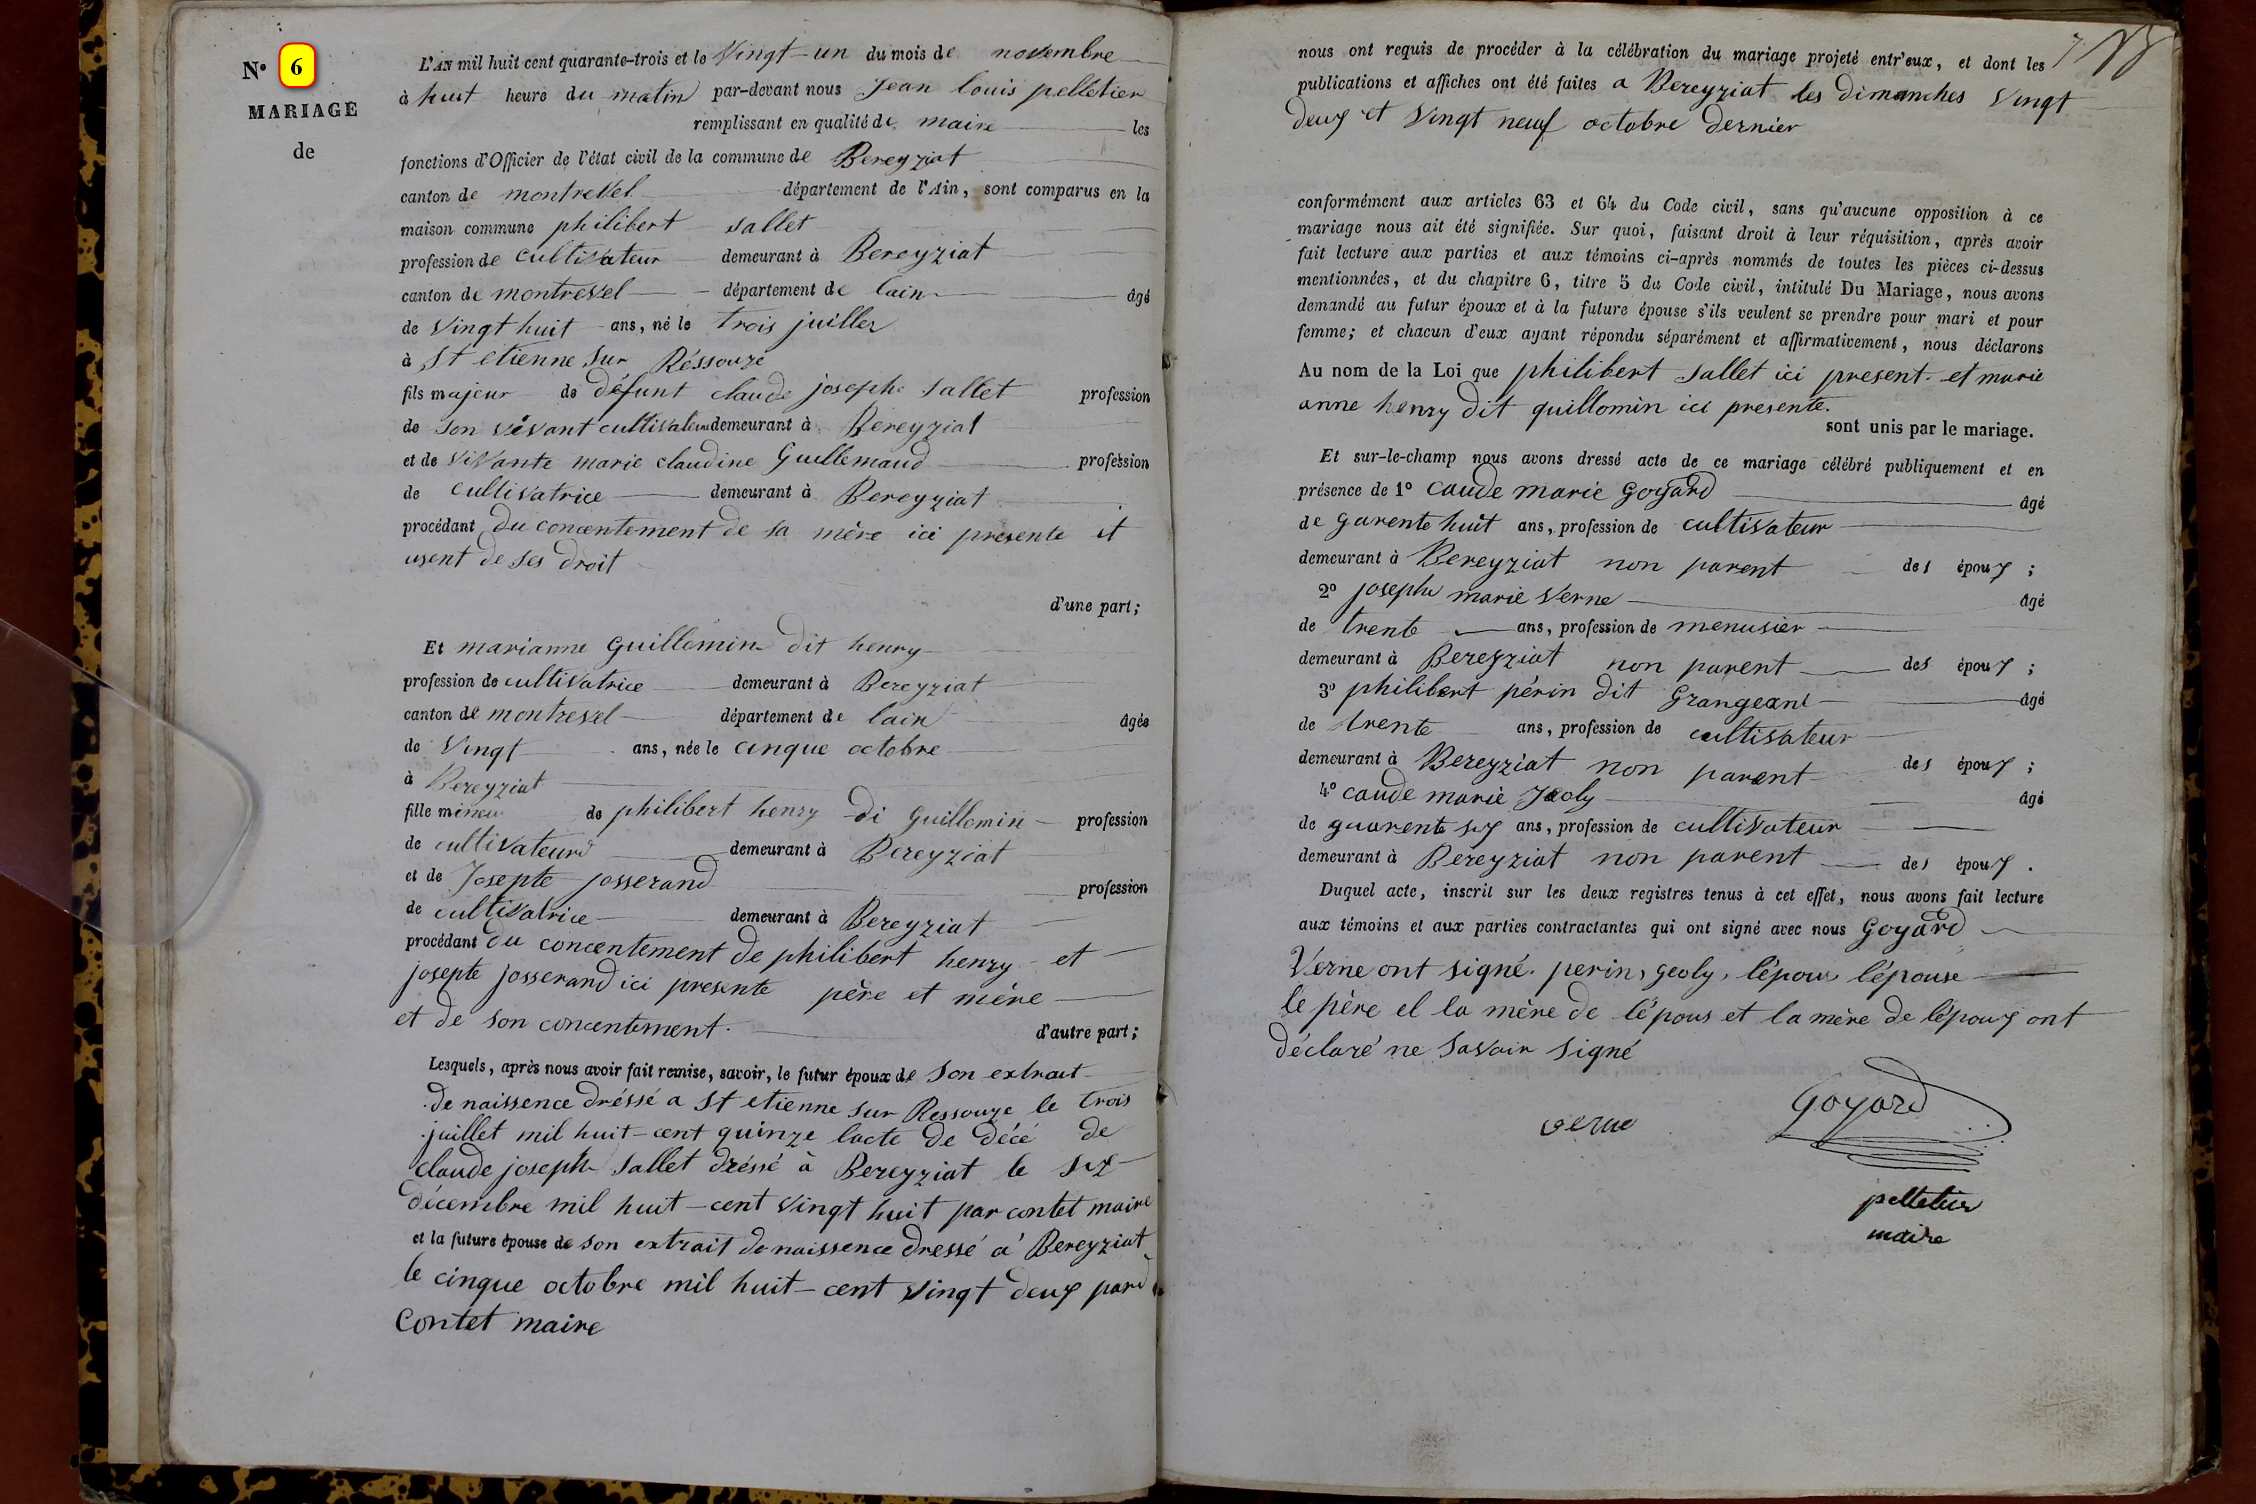 N° 6
MARIAGE
de
L'AN mil huit cent quarante-trois et le Vingt-un du mois de novembre
à huit heure du matin par-devant nous Jean louis pelletier
remplissant en qualité de maire les
fonctions d'Officier de l'état civil de la commune de Bereyziat
canton de montrevel département de l'Ain, sont comparus en la
maison commune philibert sallet
profession de cultivateur demeurant à Bereyziat
canton de montrevel département de lain âgé
de Vingt huit ans, né le trois juillet
à St etienne sur Réssouze
fils majeur de défunt claude josephe sallet profession
de son vivant cultivateur demeurant à Bereyziat
et de vivante marie claudine Guillemaud profession
de cultivatrice demeurant à Bereyziat
procédant du concentement de sa mère ici presente et
usent de ses droit
d'une part;
Et marianne Guillemin dit henry
profession de cultivatrice demeurant à Bereyziat
canton de montrevel département de lain âgée
de Vingt ans, née le cinque octobre
à Bereyziat
fille mineur de philibert henry di guillemin profession
de cultivateurd demeurant à Bereyziat
et de Josepte josserand profession
de cultivatrice demeurant à Bereyziat
procédant du concentement de philibert henry et
josepte josserand ici presente père et mère
et de son concentement. d'autre part;
Lesquels, après nous avoir fait remise, savoir, le futur époux de son extrait
de naissence dréssé a St etienne sur Ressouze le trois
juillet mil huit-cent quinze lacte de décé de
claude joseph sallet dréssé à Bereyziat le six
décembre mil huit-cent vingt huit par contet maire
et la future épouse de son extrait de naissence dressé a Bereyziat
le cinque octobre mil huit-cent vingt deux pard
contet maire
nous ont requis de procéder à la célébration du mariage projeté entr'eux, et dont les
publications et affiches ont été faites a Bereyziat les dimanches vingt
deux et vingt neuf octobre dernier
conformément aux articles 63 et 64 du Code civil, sans qu'aucune opposition à ce
mariage nous ait été signifiée. Sur quoi, faisant droit à leur réquisition, après avoir
fait lecture aux parties et aux témoins ci-après nommés de toutes les pièces ci-dessus
mentionnées, et du chapitre 6, titre 5 du Code civil, intitulé Du Mariage, nous avons
demandé au futur époux et à la future épouse s'ils veulent se prendre pour mari et pour
femme; et chacun d'eux ayant répondu séparément et affirmativement, nous déclarons
Au nom de la Loi que philibert sallet ici present. et marie
anne henry dit guillomin ici presente.
sont unis par le mariage.
Et sur-le-champ nous avons dressé acte de ce mariage célébré publiquement et en
présence de 1° caude marie goyard âgé
de garente huit ans, profession de cultivateur
demeurant à Bereyziat non parent des époux ;
2° josephe marie verne âgé
de trente ans, profession de menusier
demeurant à Bereyziat non parent des époux ;
3° philibert périn dit Grangeant âgé
de trente ans, profession de cultivateur
demeurant à Bereyziat non parent des époux ;
4° caude marie Jeoly âgé
de guarente six ans, profession de cultivateur
demeurant à Bereyziat non parent des époux .
Duquel acte, inscrit sur les deux registres tenus à cet effet, nous avons fait lecture
aux témoins et aux parties contractantes qui ont signé avec nous Goyard
Verne ont signé. perin, geoly, lépoux lépouse
le père et la mère de lépous et la mère de lépoux ont
déclaré ne savoir signé
verne
Goyard
pelletier
maire